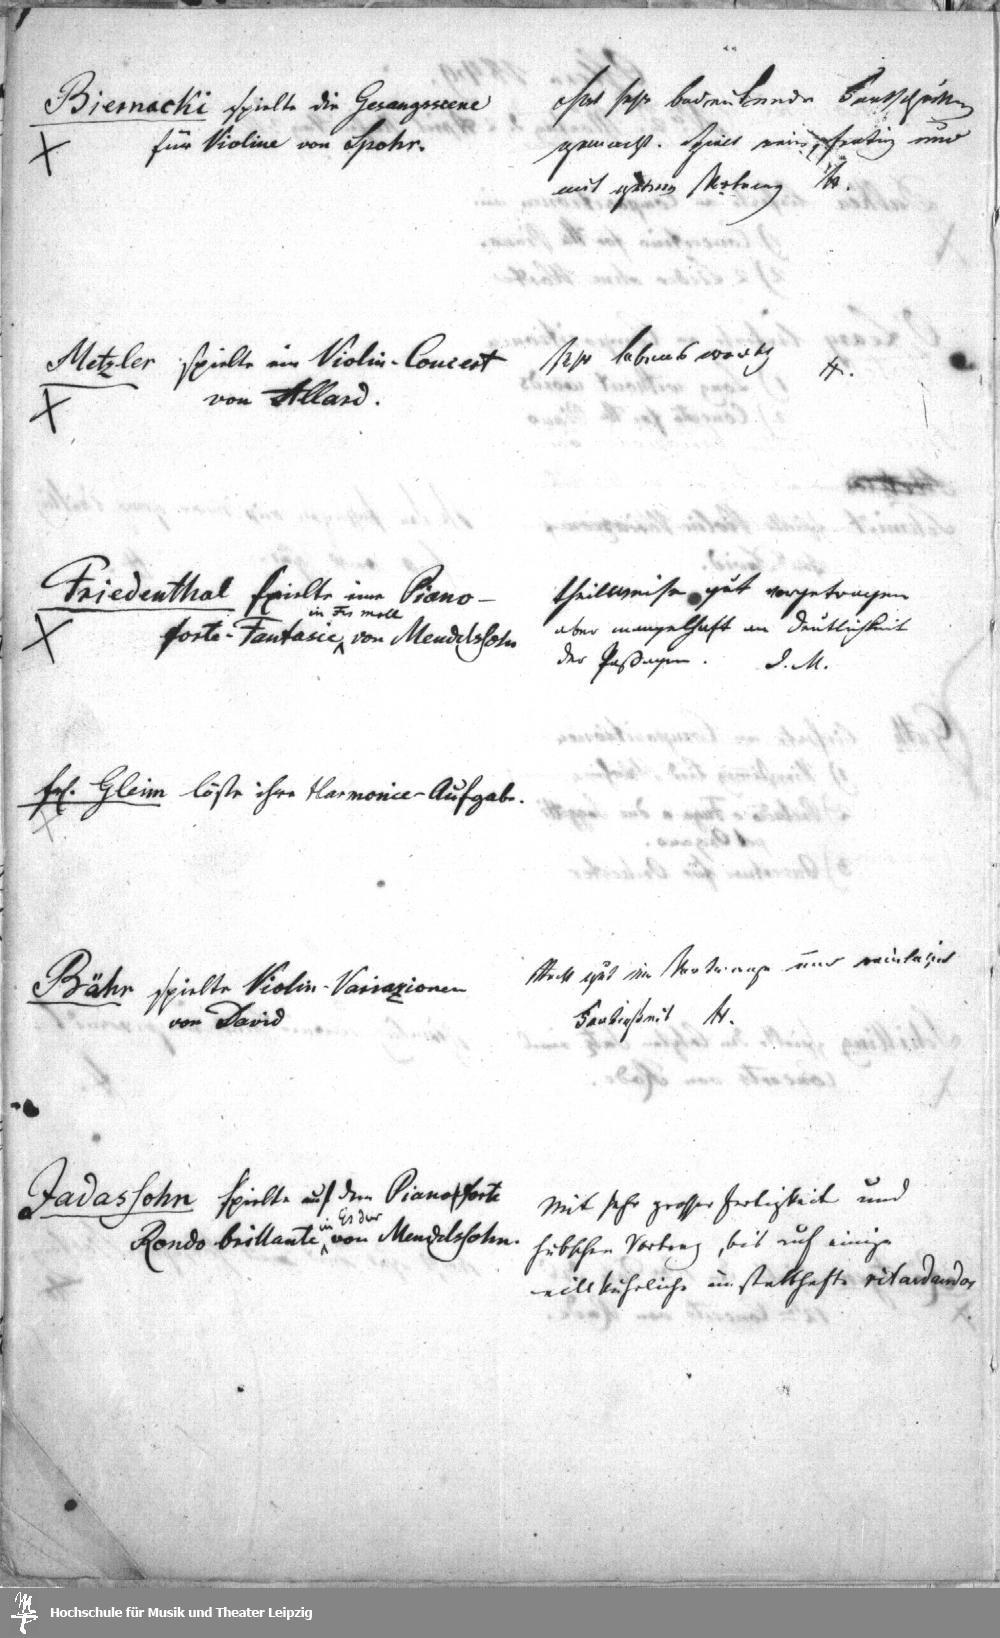 Biernacki spielte die Gesangsscene
für Violine von Spohr.
hat sehr bedeutende Fortschritte
gemacht. Spielt rein, fertig und
mit gutem Vortrag H.
Metzler spielte ein Violin-Concert
von Allard.
sehr lobenswerth H.
Friedenthal spielte eine Piano-
in Fis moll
forte-Fantasie von Mendelssohn
theilweise gut vorgetragen
aber mangelhaft an Deutlichkeit
der Passagen. I. M.
Frl. Gleim löste ihre Harmonie-Aufgabe.
Bähr spielte Violin-Variazionen
von David
recht gut im Vortrage und
H.
Jadassohn spielte auf dem Pianoforte
in Es dur
Rondo brillante von Mendelssohn.
Mit sehr grosser Fertigkeit und
hübschem Vortrag, bis auf einige
willkührliche unstatthafte ritardandos
Hochschule für Musik und Theater Leipzig